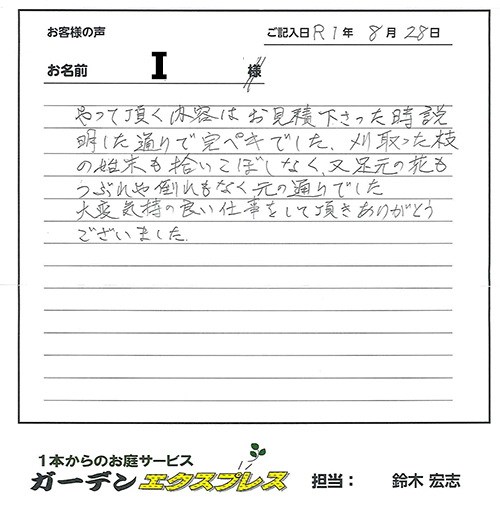 お客様の声
ご記入日 R1年 8月 28日
お名前 I 様
やって頂く内容はお見積下さった時説
明した通りで完ペキでした。刈取った枝
の始末も拾いこぼしなく、又足元の花も
つぶれや倒れもなく元の通りでした
大変気持の良い仕事をして頂きありがとう
ございました。
1本からのお庭サービス
ガーデンエクスプレス 担当： 鈴木 宏志